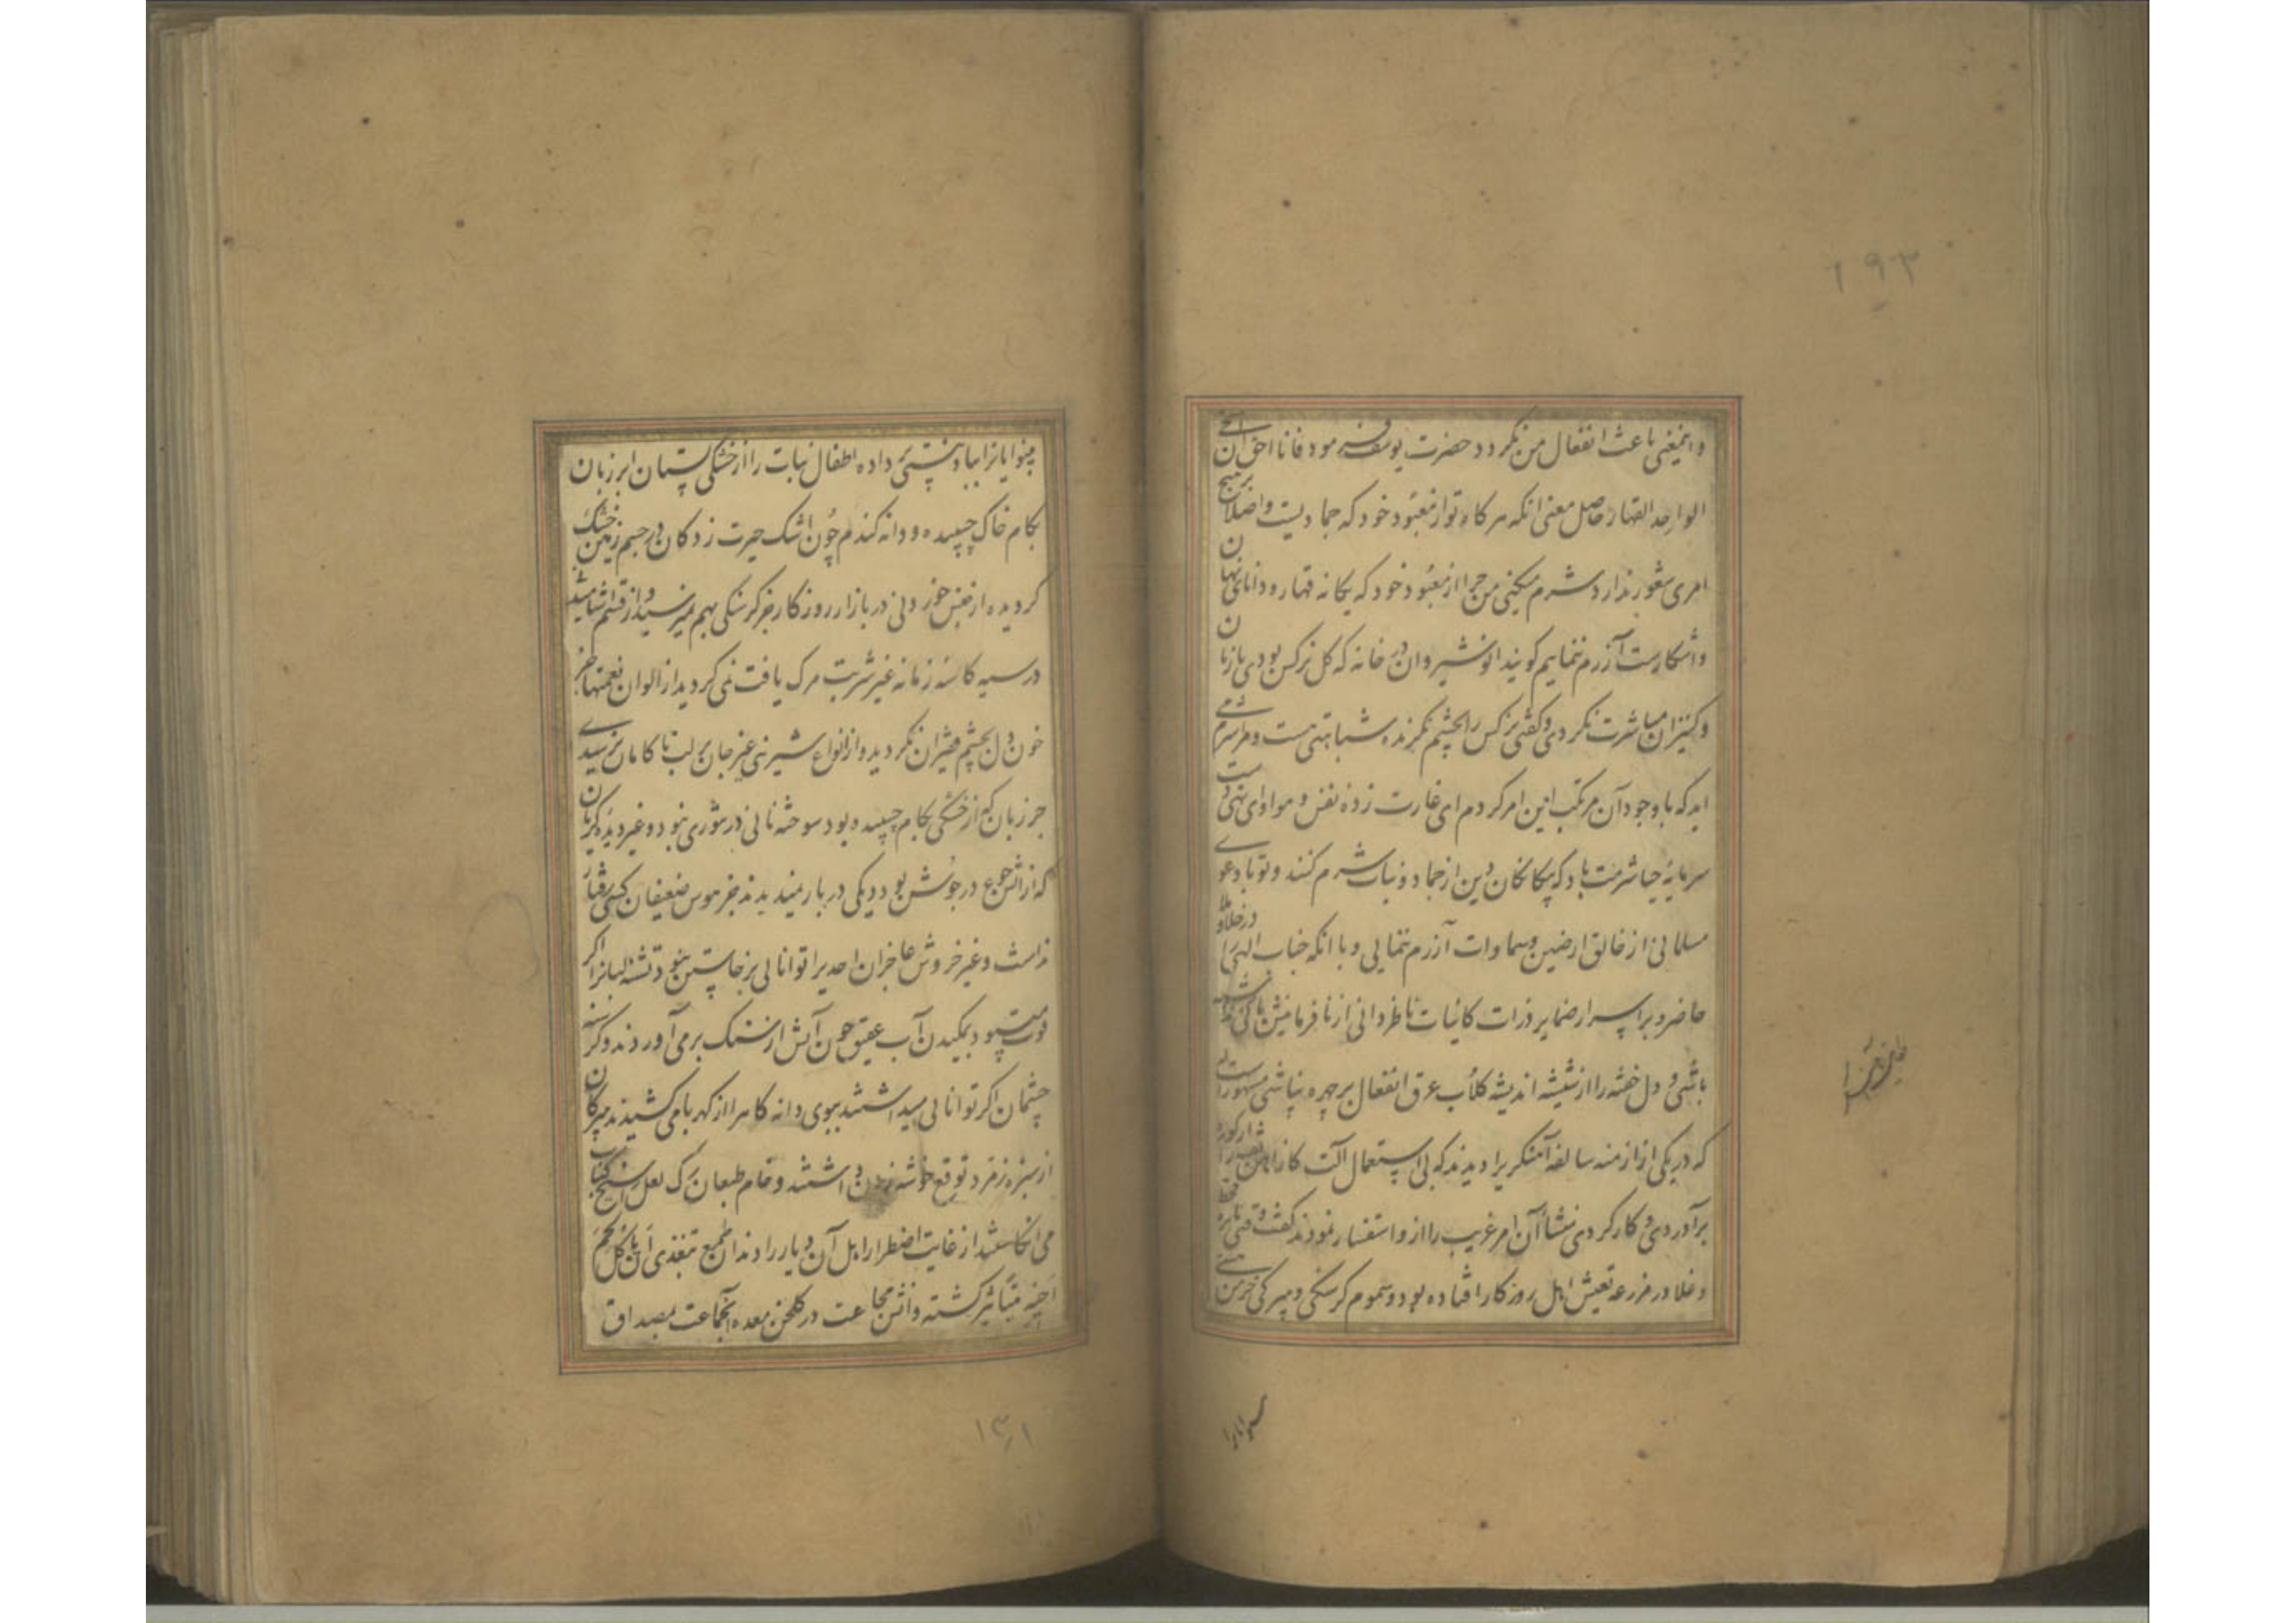 ۱۹۳
و اینمعنی باعث انفعال من نکردد حضرت یوسف فرمود فانا احق ان استحی
الواحد القهار حاصل معنی انکه هر کاه تو از معبود خود که جمادیست و اصلا بر هیچ
امری شعور ندارد شرم میکنی من چرا از معبود خود که یکانه قهار و دانای نهان
و آشکارست آزرم ننمایم کویند انوشیروان در خانه که کل نرکس بودی با زنان
و کنیزان مباشرت نکردی و کفتی نرکس را بچشم نکرنده شباهتی هست و مرا شرمی
اید که با وجود آن مرتکب این امر کردم ای غارت زده نفس و هوا و ای تهی دست
سرمایه حیا شرمت باد که بیکانکان دین از جماد و نبات شرم کنند و تو با دعوی
مسلمانی از خالق ارضین و سماوات آزرم ننمایی و با انکه جناب الهی را در خلا و ملا
حاضر و بر اسرار ضمایر ذرات کائنات ناظر دانی از نافرمانیش باک نداشته
باشی و دل خفته را از شیشه اندیشه کلاب عرق انفعال بر چهره نپاشی مشهور است
که در یکی از ازمنه سالفه آهنکریرا دیدند که بی استعمال آلت کار آهن تفته را از کوره
برآوردی و کار کردی منشأ آن امر غریب را از و استفسار نمودند کفت وقتی نایره قحط
و غلا در مزرعه تعیش اهل روزکار افتاده بود و سموم کرسنکی و میرکی خرمن هستی
بینوایانرا بباد نیستی داده اطفال نبات را از خشکی پستان ابر زبان
بکام خاک چسپیده و دانه کندم چون اشک حیرت زدکان در جسم زمین خشک
کردیده از جنس خوردنی در بازار روزکار جز کرسنکی بهم نمیرسید و از قسم آشامیدنی
در سیه کاسه زمانه غیر شربت مرک یافت نمی کردید از الوان نعمتها جز
خون دل بچشم فقیران نکردید و از انواع شیرینی غیر جان بر لب ناکامان نرسیدی
جز زبان که از خشکی بکام چسپیده بود سوخته نانی در تنوری نبود و غیر دیده کریان
که از آتش جوع در جوش بود دیکی در بار نمیدیدند جز هوس ضعیفان کسی رفتار
نداشت و غیر خروش عاجزان احدیرا توانایی برخاستن نبود تشنه لبانرا اکر
قوت میبود بمکیدن آب عقیق چون آتش از سنک برمی آوردند و کرسنه
چشمان اکر توانایی میداشتند ببوی دانه کاه را از کهربا می کشیدند
از سبزه زمرد توقع خوشه زدن داشتند و خام طبعان برک لعل را سیخ کباب
می انکاشتند از غایت اضطرار اهل آن دیار را دندان طمع بتغذی
اخیه میتا تیز کشته و آتش مجاعت در کلخن معده آنجماعت بمصداق
بینوایانرا
۱۳۱